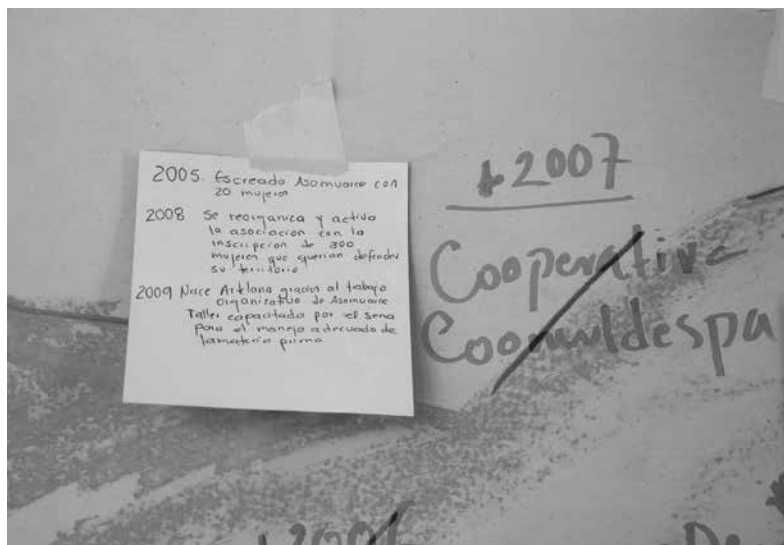 2005 Escreado Asomuarce con
20 mujeres
2008 Se reorganica y activa
la asociacion con la
inscripcion de 300
mujeres que querian defender
su territorio
2009 Nace Artlana gracias al trabajo
organizativo de Asomuarce
Taller capacitado por el sena
para el manejo adecuado de
lamateria prima
2007
Cooperativa
Coomuldespa
200
De